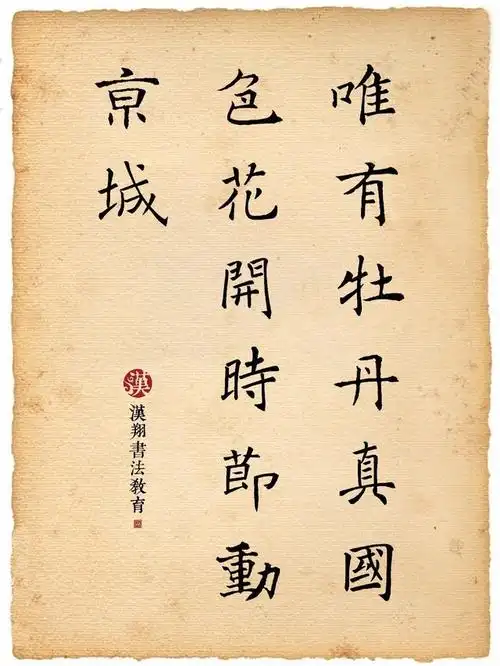 唯有牡丹真國
色花開時節動
京城
漢
漢翔書法教育